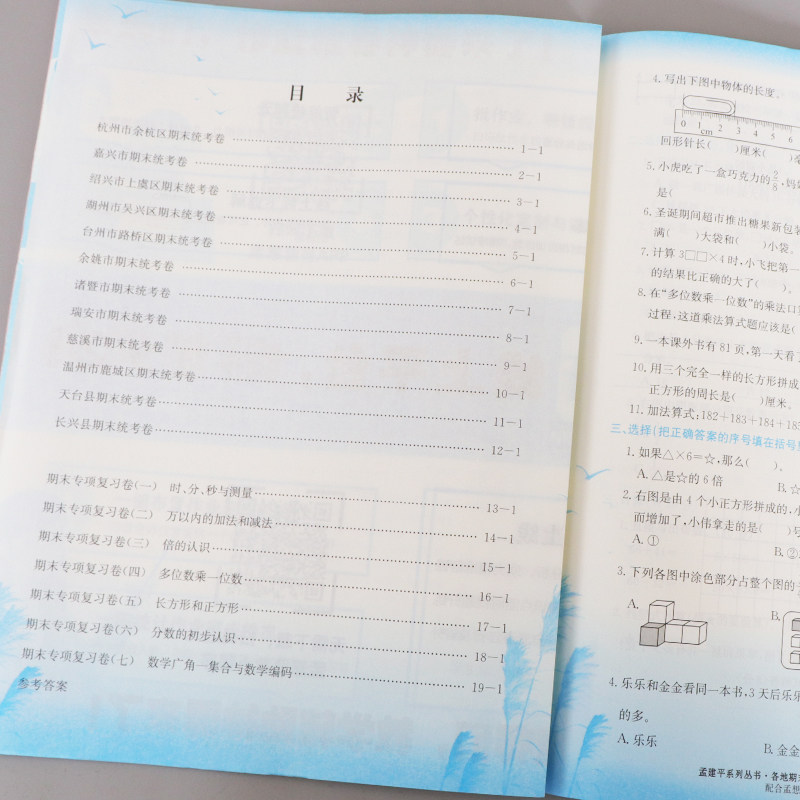 目 录
杭州市余杭区期末统考卷 1-1
嘉兴市期末统考卷 2-1
绍兴市上虞区期末统考卷 3-1
湖州市吴兴区期末统考卷 4-1
台州市路桥区期末统考卷 5-1
余姚市期末统考卷 6-1
诸暨市期末统考卷 7-1
瑞安市期末统考卷 8-1
慈溪市期末统考卷 9-1
温州市鹿城区期末统考卷 10-1
天台县期末统考卷 11-1
长兴县期末统考卷 12-1
期末专项复习卷(一) 时、分、秒与测量 13-1
期末专项复习卷(二) 万以内的加法和减法 14-1
期末专项复习卷(三) 倍的认识 15-1
期末专项复习卷(四) 多位数乘一位数 16-1
期末专项复习卷(五) 长方形和正方形 17-1
期末专项复习卷(六) 分数的初步认识 18-1
期末专项复习卷(七) 数学广角—集合与数学编码 19-1
参考答案
4.写出下图中物体的长度。
0 1 2 3 4 5 6
cm
回形针长( )厘米( )
5.小虎吃了一盒巧克力的2/8,妈
是(
6.圣诞期间超市推出糖果新包装
满( )大袋和( )小袋。
7.计算 3□□×4时,小飞把第一
的结果比正确的大了( )。
8.在“多位数乘一位数”的乘法口
过程,这道乘法算式题应该是(
9.一本课外书有81页,第一天看了
10.用三个完全一样的长方形拼成
正方形的周长是( )厘米。
11.加法算式:182+183+184+185
三、选择(把正确答案的序号填在括号
1.如果△×6=☆,那么( )。
A.△是☆的6倍 B.☆
2.右图是由4个小正方形拼成的,小
而增加了,小伟拿走的是( )号
A.① B.②
3.下列各图中涂色部分占整个图的
A. B.
4.乐乐和金金看同一本书,3天后乐乐
的多。
A.乐乐 B.金金
孟建平系列丛书·各地期末
配合孟想